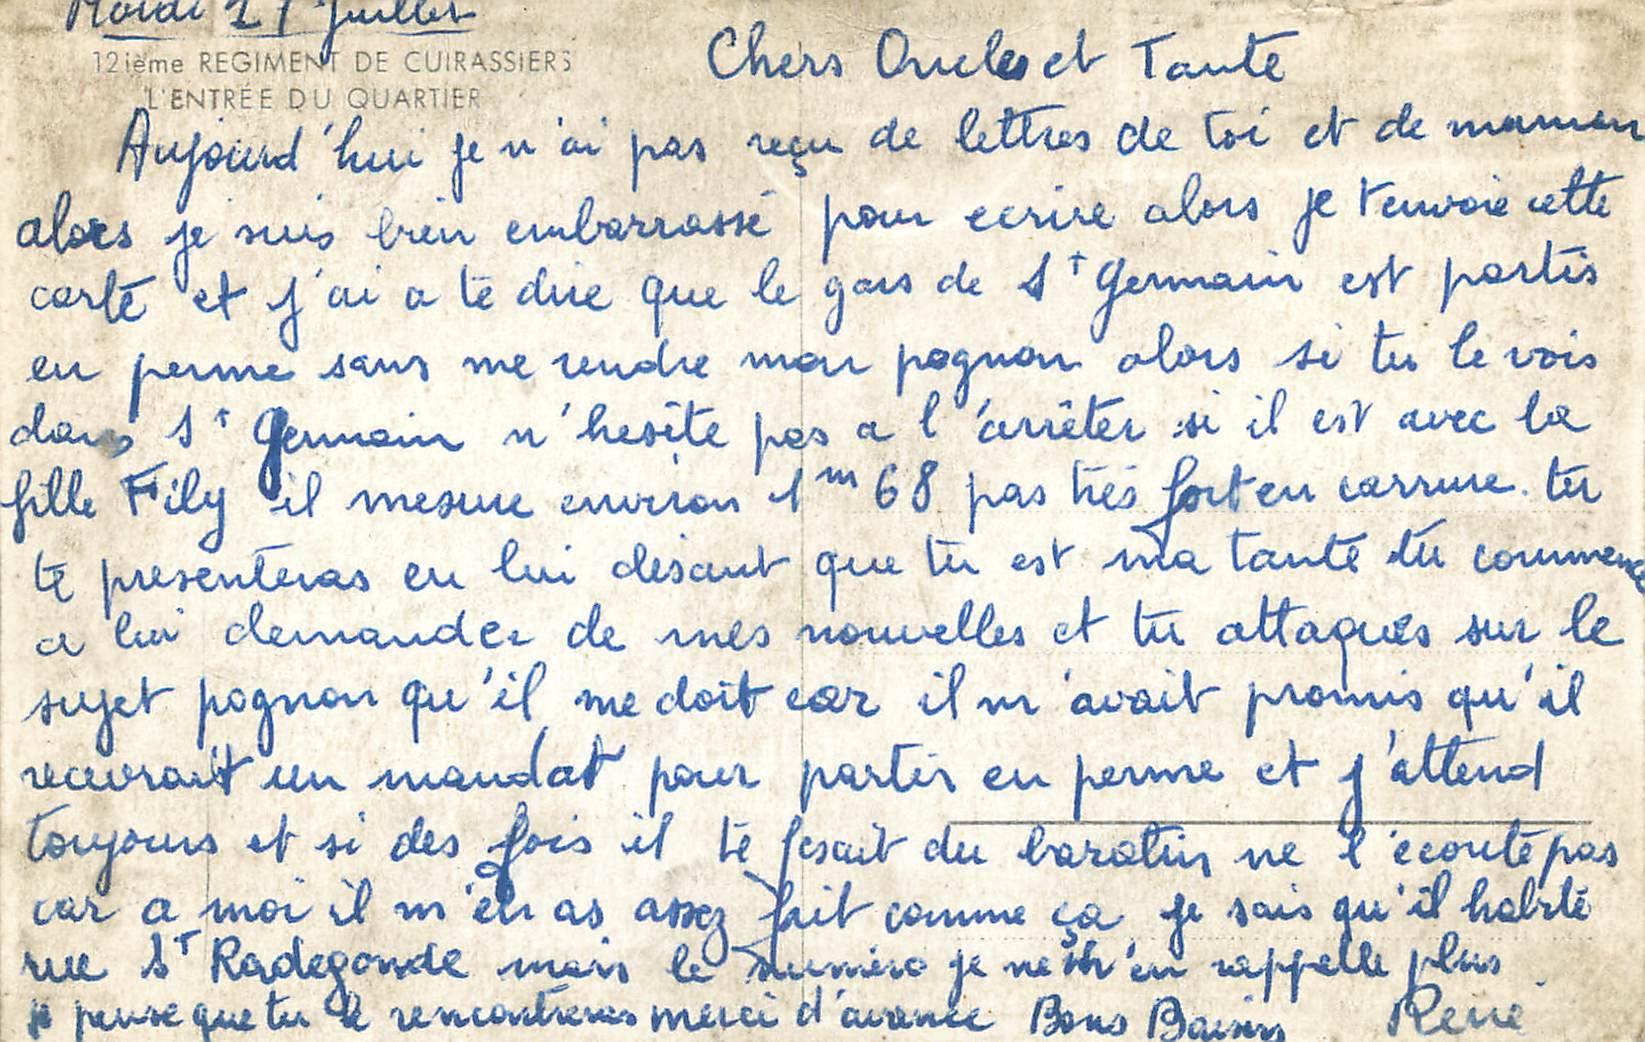 Mardi 27 Juillet
12ième REGIMENT DE CUIRASSIERS
L'ENTRÉE DU QUARTIER
Chers Oncle et Tante
Aujourd'hui je n'ai pas reçu de lettres de toi et de maman
alors je suis bien embarrassé pour ecrire alors je t'envoie cette
carte et j'ai a te dire que le gars de St Germain est partis
en perme sans me rendre mon pognon alors si tu le vois
dans St Germain n'hesite pas a l'arrêter si il est avec la
fille Fily il mesure environ 1m68 pas très fort en carrure. tu
te presenteras en lui disant que tu est ma tante tu commence
a lui demander de mes nouvelles et tu attaques sur le
sujet pognon qu'il me doit car il m'avait promis qu'il
recevrait un mandat pour partir en perme et j'attend
toujours et si des fois il te fesait du baratin ne l'ecoute pas
car a moi il m'en as assez fait comme ça je sais qu'il habite
rue St Radegonde mais le numéro je ne m'en rappelle plus
je pense que tu le rencontreras merci d'avance Bons Baisers René